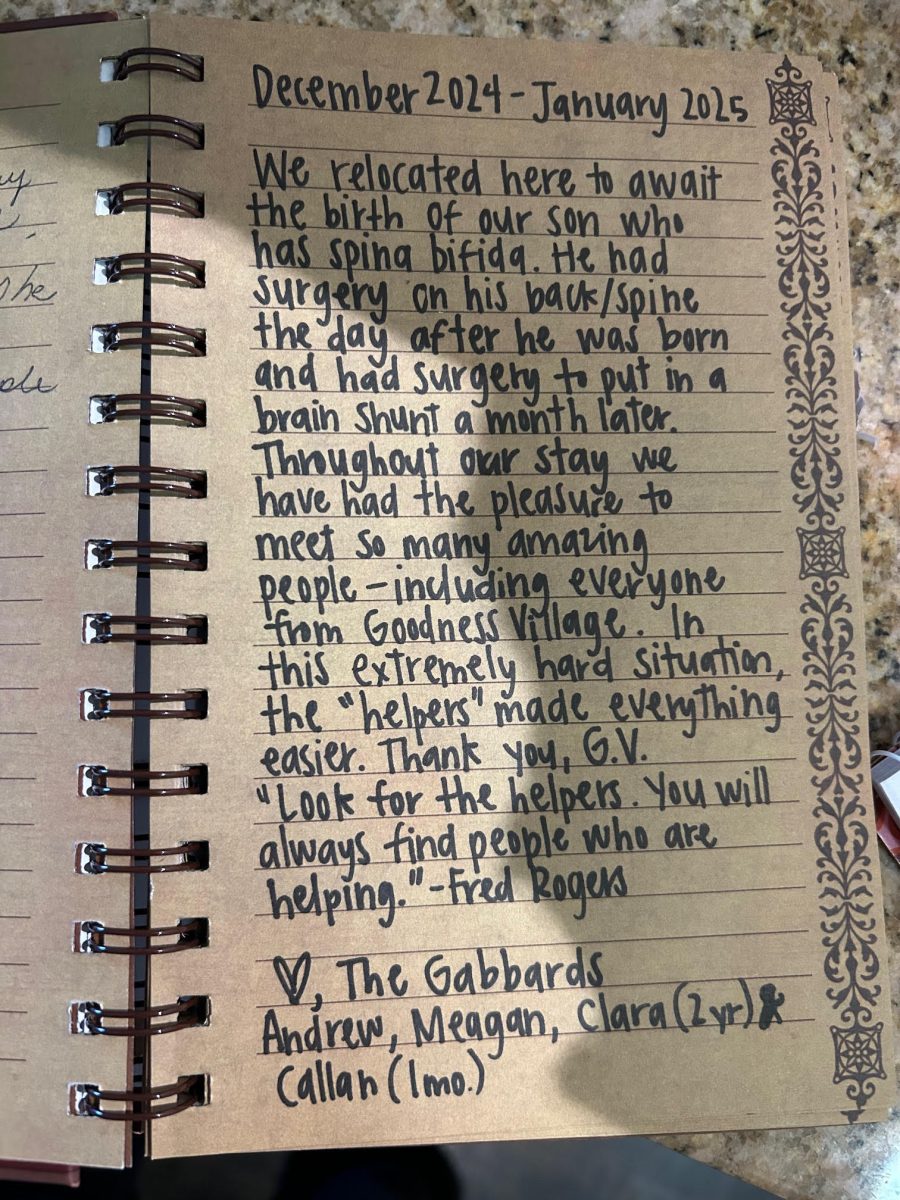 uy
he
ple
December 2024 - January 2025
We relocated here to await
the birth of our son who
has spina bifida. He had
surgery on his back/spine
the day after he was born
and had surgery to put in a
brain shunt a month later.
Throughout our stay we
have had the pleasure to
meet so many amazing
people - including everyone
from Goodness Village. In
this extremely hard situation,
the "helpers" made everything
easier. Thank you, G.V.
"Look for the helpers. You will
always find people who are
helping." - Fred Rogers
♡, The Gabbards
Andrew, Meagan, Clara (2 yr) &
Callan (1 mo.)